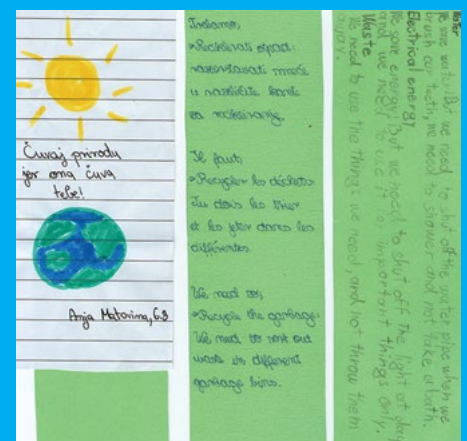 Čuvaj prirodu
jer ona čuva
tebe!
Anja Matovina, 6.3
Trebamo,
Reciklirati otpad:
razvrstavati smeće
u različite kante
za recikliranje.
Il faut,
Recycler les déchets:
Tu dois les trier
et les jeter dans les
différentes
We need to,
Recycle the garbage:
We need to sort out
waste in different
garbage bins.
Water
We save water! But we need to shut off the water pipe when we
brush our teeth, we need to shower and not take a bath.
Electrical energy
We save energy! But we need to shut off the light at
and we need to use it for important things only.
Waste
We need to use the things we need, and not throw them
away.